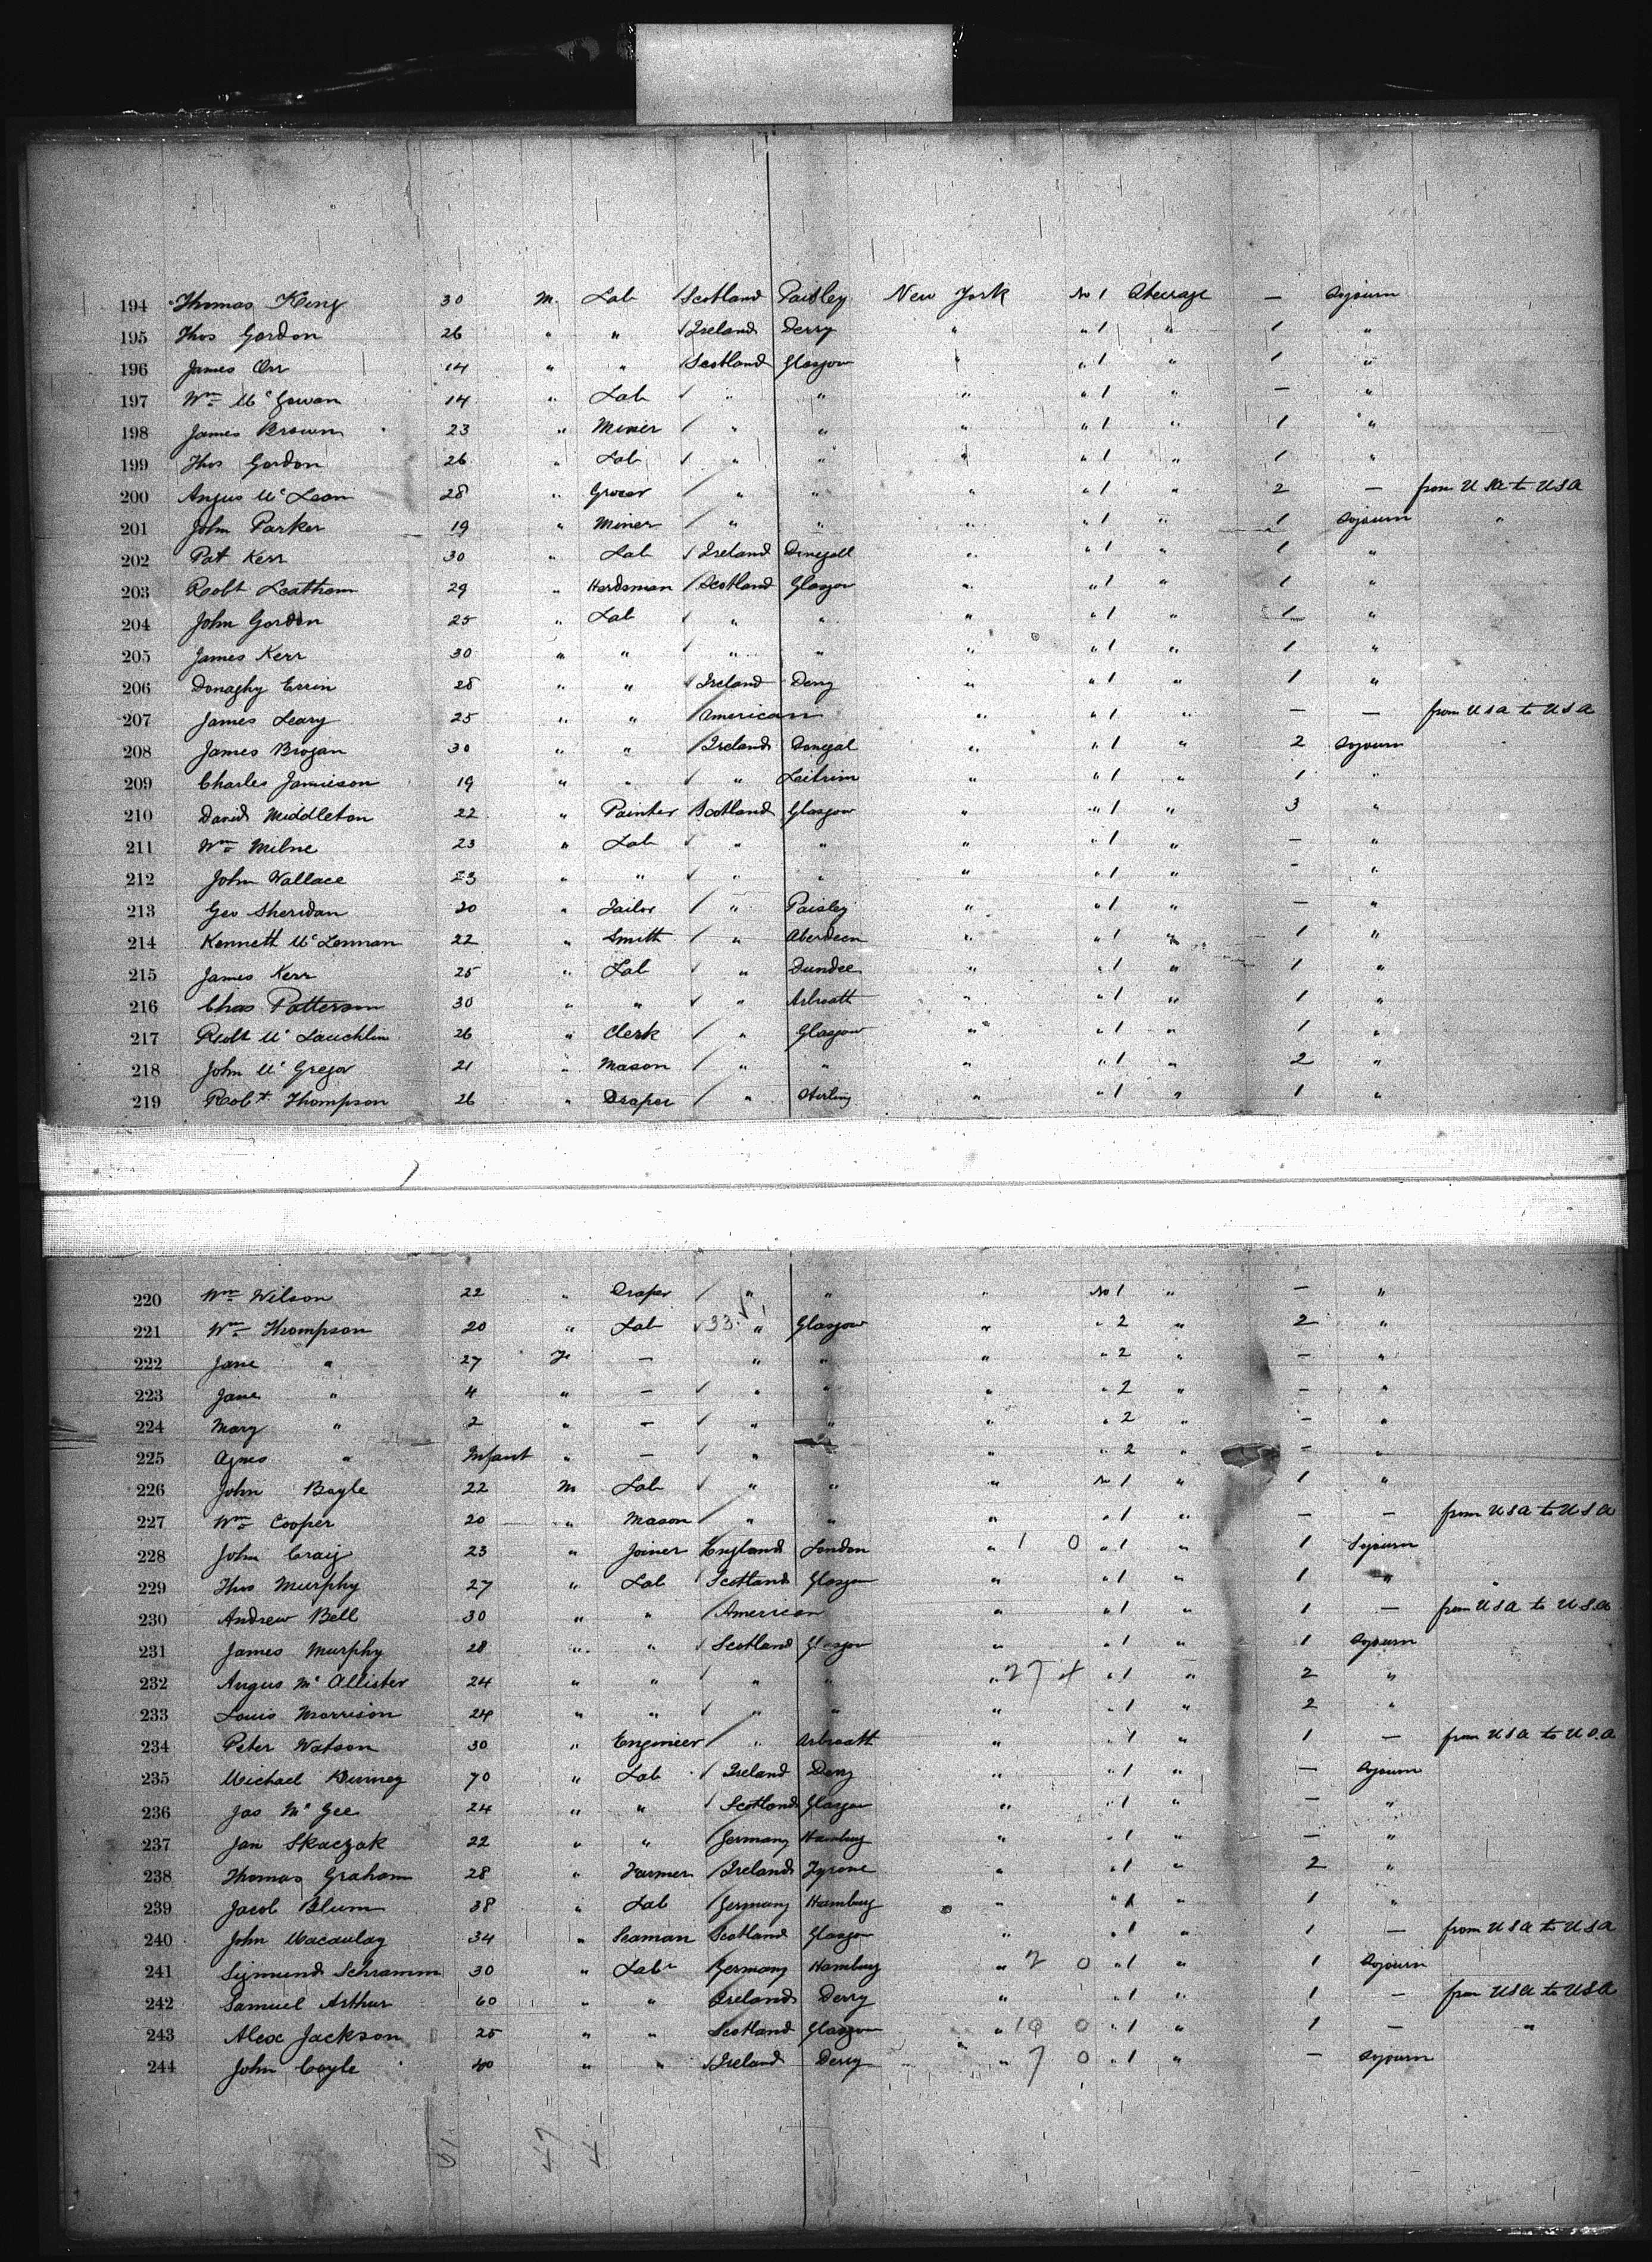 194 Thomas King 30 M. Lab Scotland Paisley New York No 1 Steerage — Sojourn
195 Thos Gordon 26 " " Ireland Derry " " 1 " 1 "
196 James Orr 14 " " Scotland Glasgow " " 1 " 1 "
197 Wm McGowan 14 " Lab " " " " 1 " — "
198 James Brown 23 " Miner " " " " 1 " 1 "
199 Thos Gordon 26 " Lab " " " " 1 " 1 "
200 Angus McLean 28 " Grocer " " " " 1 " 2 — from USA to USA
201 John Parker 19 " Miner " " " " 1 " 1 Sojourn "
202 Pat Kerr 30 " Lab Ireland Donegall " " 1 " 1 "
203 Robt Leatham 29 " Herdsman Scotland Glasgow " " 1 " 1 "
204 John Gordon 25 " Lab " " " " 1 " 1 "
205 James Kerr 30 " " " " " " 1 " 1 "
206 Donaghy Errin 28 " " Ireland Derry " " 1 " 1 "
207 James Leary 25 " " American " " 1 " — — from USA to USA
208 James Brogan 30 " " Ireland Donegal " " 1 " 2 Sojourn
209 Charles Jamieson 19 " " " Leitrim " " 1 " 1 "
210 David Middleton 22 " Painter Scotland Glasgow " " 1 " 3 "
211 Wm Milne 23 " Lab " " " " 1 " — "
212 John Wallace 23 " " " " " " 1 " — "
213 Geo Sheridan 20 " Tailor " Paisley " " 1 " — "
214 Kennett McLennan 22 " Smith " Aberdeen " " 1 " 1 "
215 James Kerr 25 " Lab " Dundee " " 1 " 1 "
216 Chas Patterson 30 " " " Arbroath " " 1 " 1 "
217 Robt McLauchlin 26 " Clerk " Glasgow " " 1 " 1 "
218 John McGregor 21 " Mason " " " " 1 " 2 "
219 Robt Thompson 26 " Draper " Stirling " " 1 " 1 "
220 Wm Wilson 22 " Draper " " " No 1 " — "
221 Wm Thompson 20 " Lab 33 " Glasgow " " 2 " 2 "
222 Jane " 27 F — " " " " 2 " — "
223 Jane " 4 " — " " " " 2 " — "
224 Mary " 2 " — " " " " 2 " — "
225 Agnes " Infant " — " " " 2 " — "
226 John Boyle 22 M Lab " " " No 1 " 1 "
227 Wm Cooper 20 " Mason " " " " 1 " — — from USA to USA
228 John Craig 23 " Joiner England London " 1 0 " 1 " 1 Sojourn
229 Thos Murphy 27 " Lab Scotland Glasgow " " 1 " 1 " "
230 Andrew Bell 30 " " American " " 1 " 1 — from USA to USA
231 James Murphy 28 " " Scotland Glasgow " " 1 " 1 Sojourn
232 Angus McAllister 24 " " " " " 27 " 1 " 2 "
233 Louis Morrison 24 " " " " " " 1 " 2 "
234 Peter Watson 30 " Engineer " Arbroath " " 1 " 1 — from USA to USA
235 Michael 70 " Lab Ireland Derry " " 1 " — Sojourn
236 Jas McGee 24 " " Scotland Glasgow " " 1 " — "
237 Jan Skaczak 22 " " Germany Hamburg " " 1 " — "
238 Thomas Graham 28 " Farmer Ireland Tyrone " " 1 " 2 "
239 Jacob Blum 38 " Lab Germany Hamburg " " 1 " 1 "
240 John Macaulay 34 " Seaman Scotland Glasgow " " 1 " 1 — from USA to USA
241 Sigmund Schramm 30 " Labr Germany Hamburg " 2 0 " 1 " 1 Sojourn
242 Samuel Arthur 60 " " Ireland Derry " " 1 " 1 — from USA to USA
243 Alex Jackson 25 " " Scotland Glasgow " 10 0 " 1 " 1 — "
244 John Coyle 40 " " Ireland Derry " 7 0 " 1 " — Sojourn